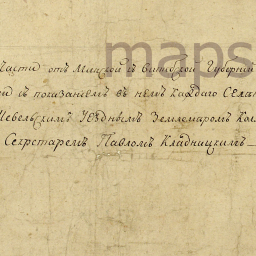 maps
части отъ Минской и Витебской Губерніи
ой съ показаніемъ въ немъ каждаго Села
Уѣзднымъ Землемѣромъ Кол
Секретаремъ Павломъ Кладницкимъ